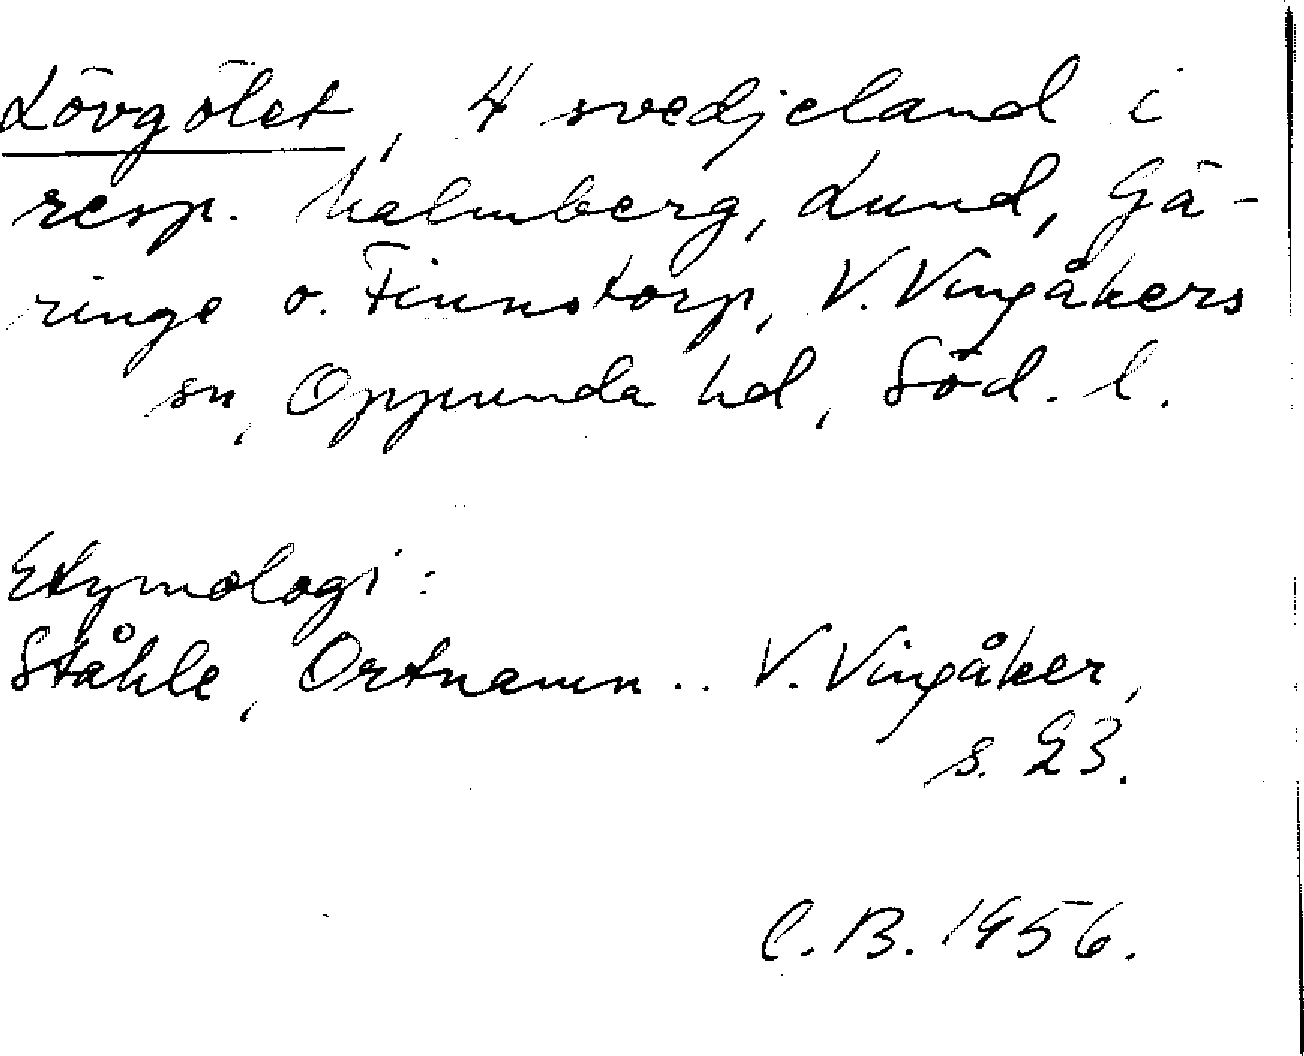 Lövgölet, 4 svedjeland i
resp. Malmberg, Lund, Gä-
ringe o. Finnstorp, V. Vingåkers
sn, Oppunda hd, Söd. l.
Etymologi:
Ståhle, Ortnamn.. V. Vingåker,
s. 23.
C.B. 1956.